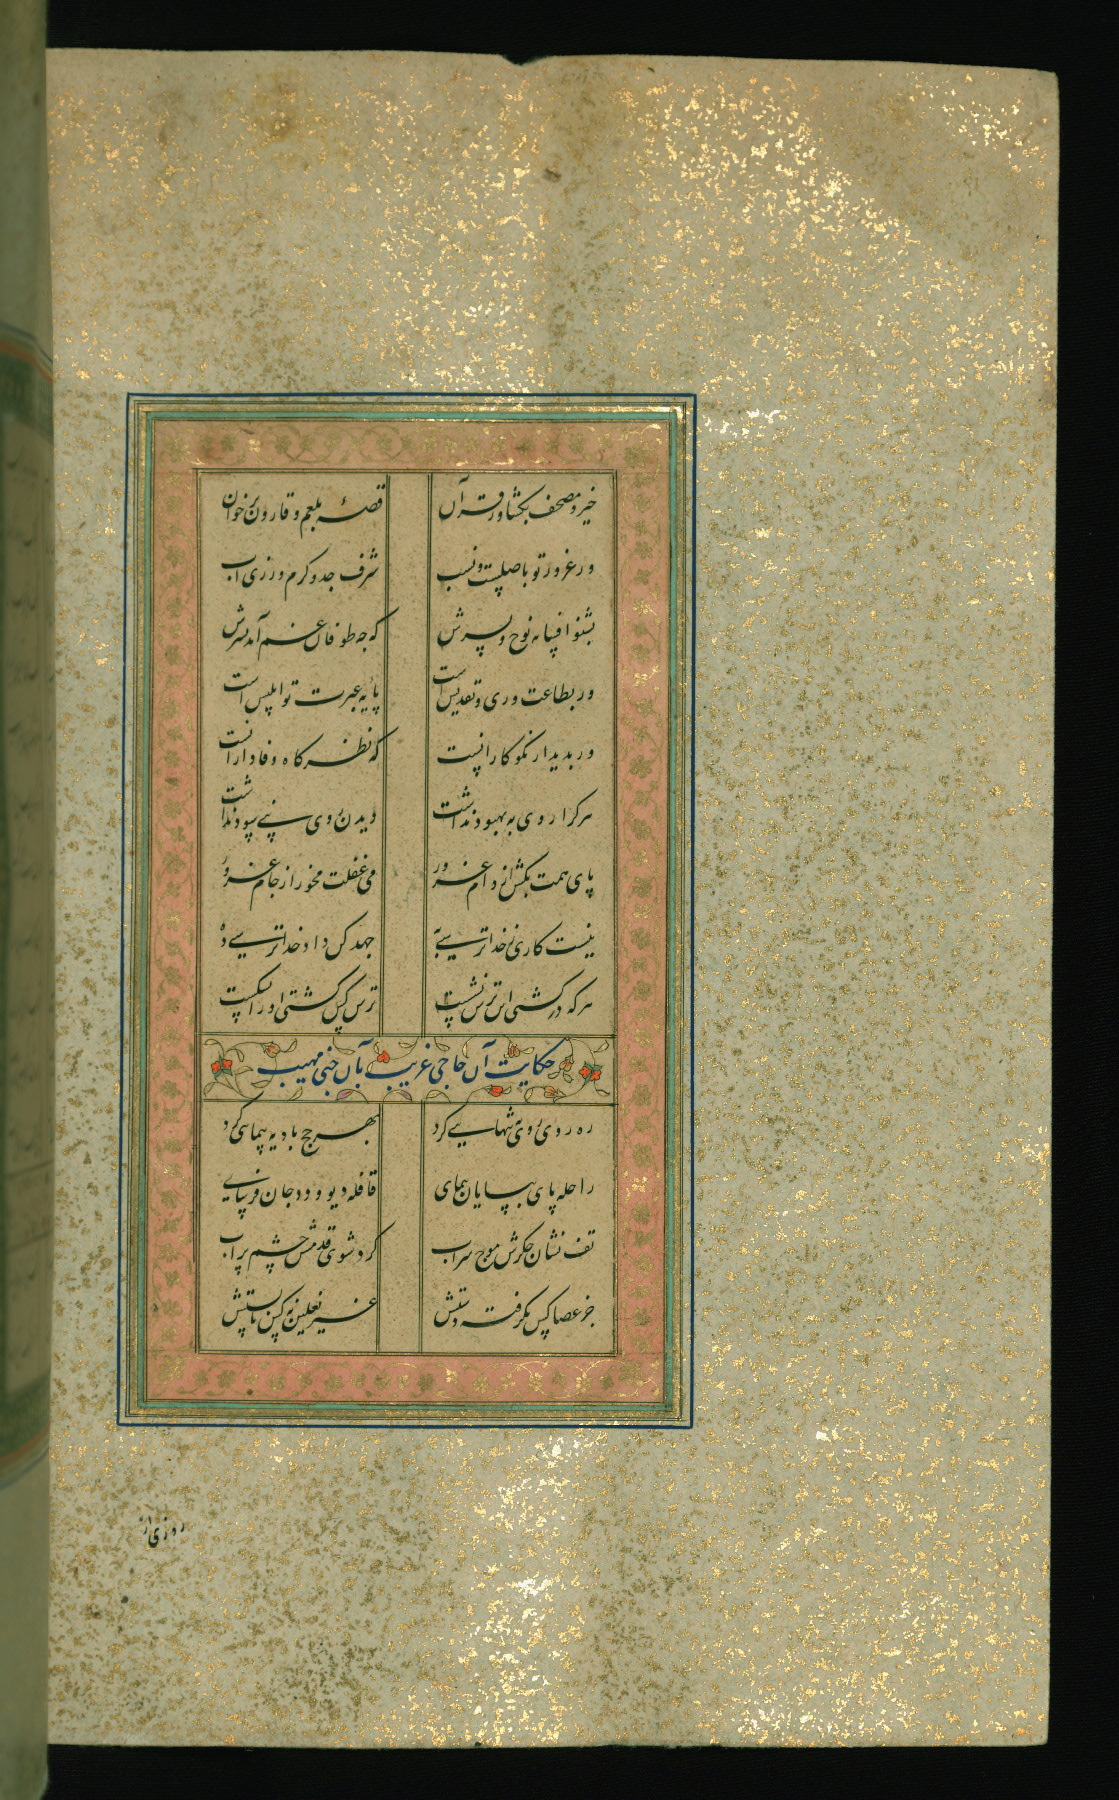 خیز و مصحف بکشا ور قرآن قصهٔ بلعم و قارون بر خوان
ور غرور تو باصلست و نسب شرف جد و کرم ورزی اب
بشنو افسانه نوح و پسرش که چه طوفان غم آمد بسرش
ور بطاعت وری و تقدیس است پایه عبرت تو ابلیس است
ور بدیدار نکوکارانست که نظرکاه وفادارانست
هرکرا روی به بهبود نداشت دیدن روی نبی سود نداشت
پای همت بکش از دام غرور می غفلت مخور از جام غرور
نیست کاری ز خداترسی به جهد کن داد خداترسی ده
هرکه در کشتی این ترس نشست ترس کس کشتی او را نشکست
حکایت آن حاجی غریب با آن جنی مهیب
ره روی روی به تنهایی کرد بهر حج بادیه پیمایی کرد
راحله پای بیابان پیمای قافله دیو و دد جان فرسای
تف نشان جکرش موج سراب کرد شوی قدمش چشم پر آب
جز عصا کس نکرفته دستش غیر نعلین نه کس پا بستش
روزی از